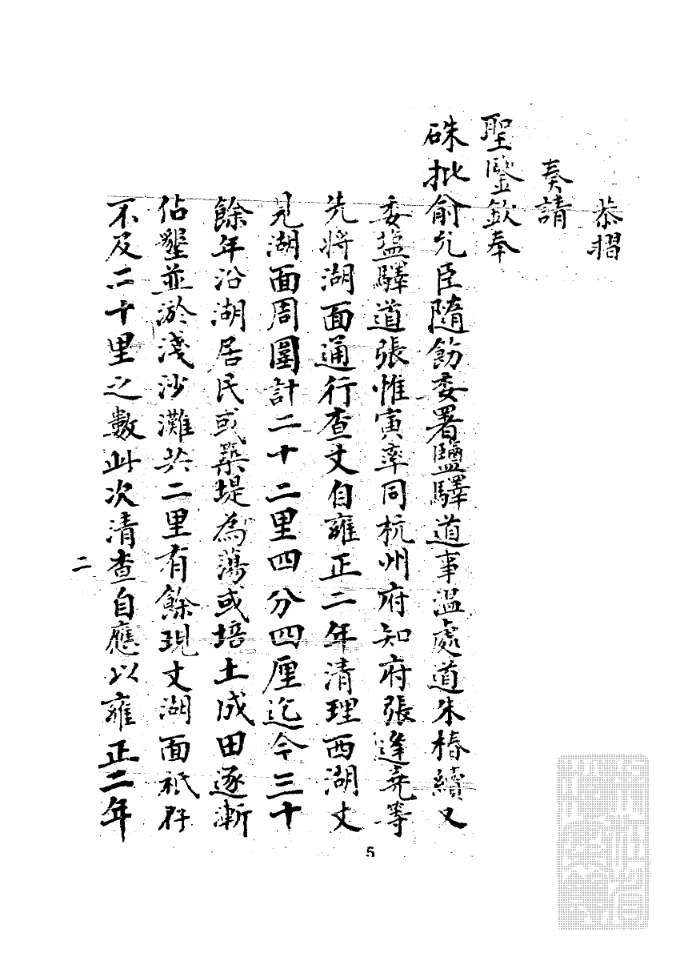 恭摺
奏請
聖鑒欽奉
硃批俞允臣隨飭委署鹽驛道事溫處道朱椿續又
委塩驛道張惟寅率同杭州府知府張逢堯等
先將湖面通行查丈自雍正二年清理西湖丈
見湖面周圍計二十二里四分四厘迄今三十
餘年沿湖居民或築堤為蕩或培土成田逐漸
佔墾並淤淺沙灘共二里有餘現丈湖面祇存
不及二十里之數此次清查自應以雍正二年
二
5